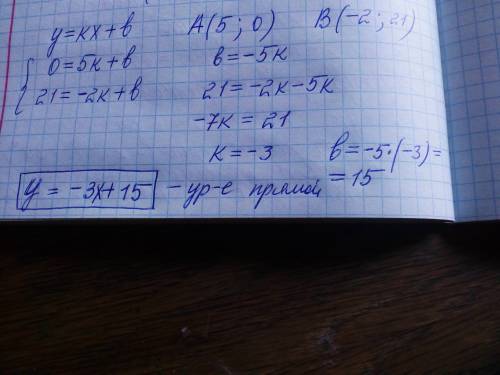 y=kx+b A(5; 0) B(-2; 21)
{ 0=5k+b b=-5k
21=-2k+b 21=-2k-5k
-7k=21
k=-3 b=-5·(-3)=
=15
y=-3x+15 - ур-е прямой